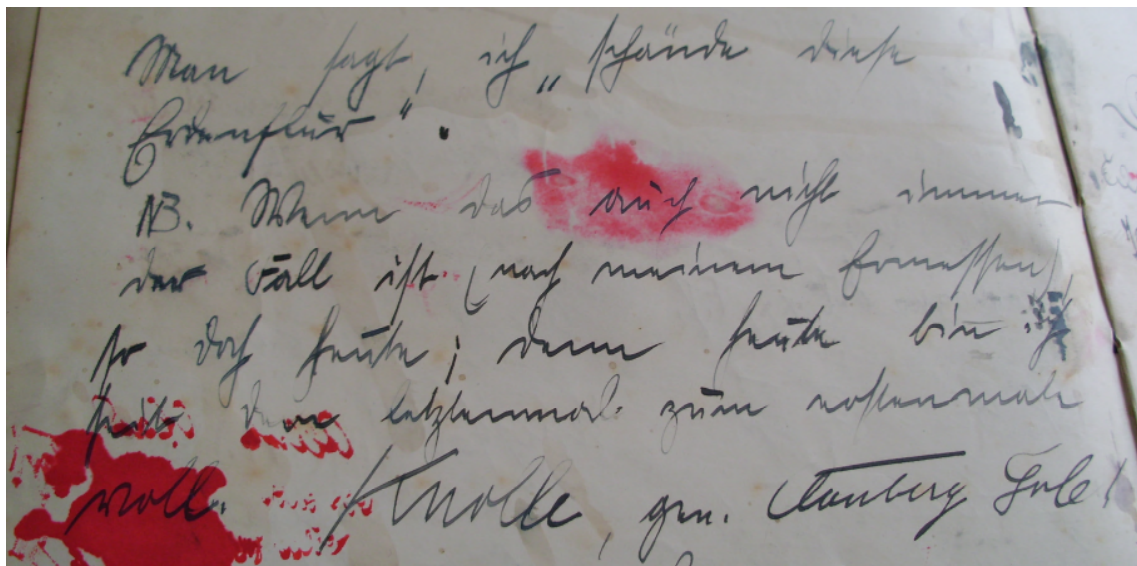 Man sagt, ich „schände diese
Erdenflur“.
NB. Wenn das auch nicht immer
der Fall ist (nach meinem Ermessen),
so doch heute; denn heute bin ich
seit dem letztenmal zum erstenmale
voll. Knolle, gen.